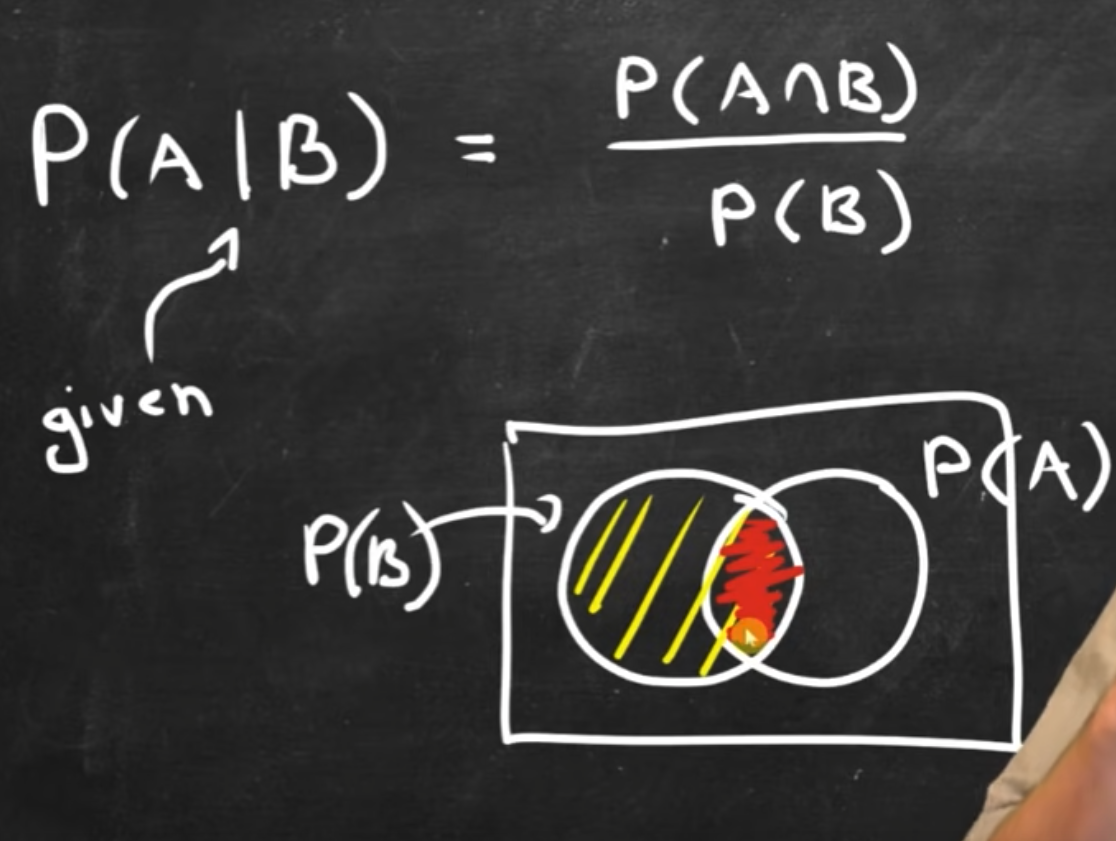 P(A|B) = P(A∩B)
P(B)
given
P(A)
P(B)